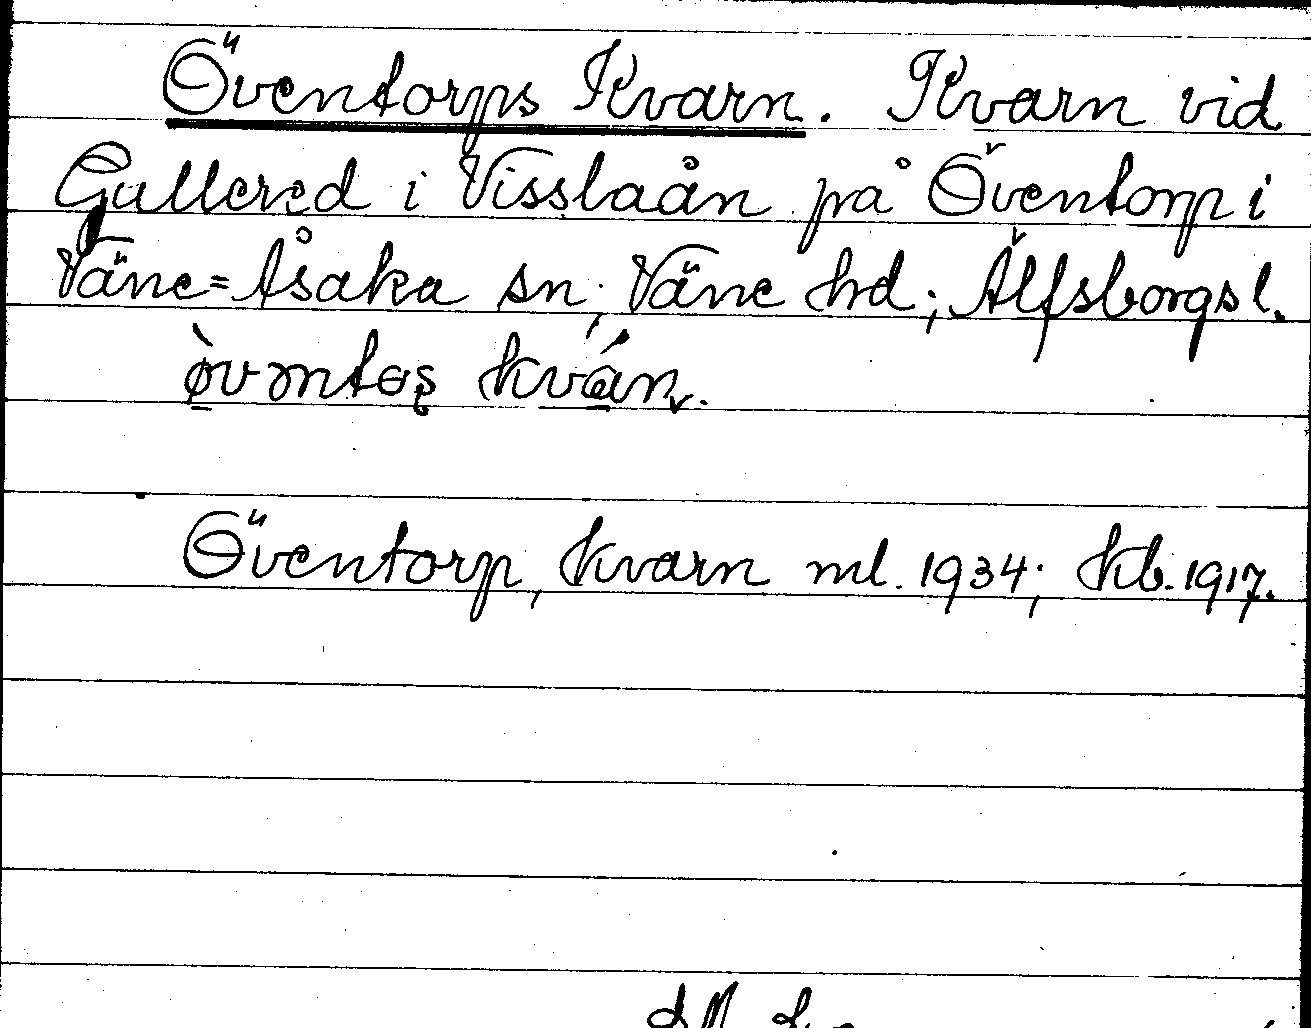 Öventorps Kvarn. Kvarn vid
Gullered i Visslaån på Öventorp i
Väne=Åsaka sn; Väne hd; Älfsborgs l.
kván.
Öventorp, kvarn ml. 1934; kb. 1917.